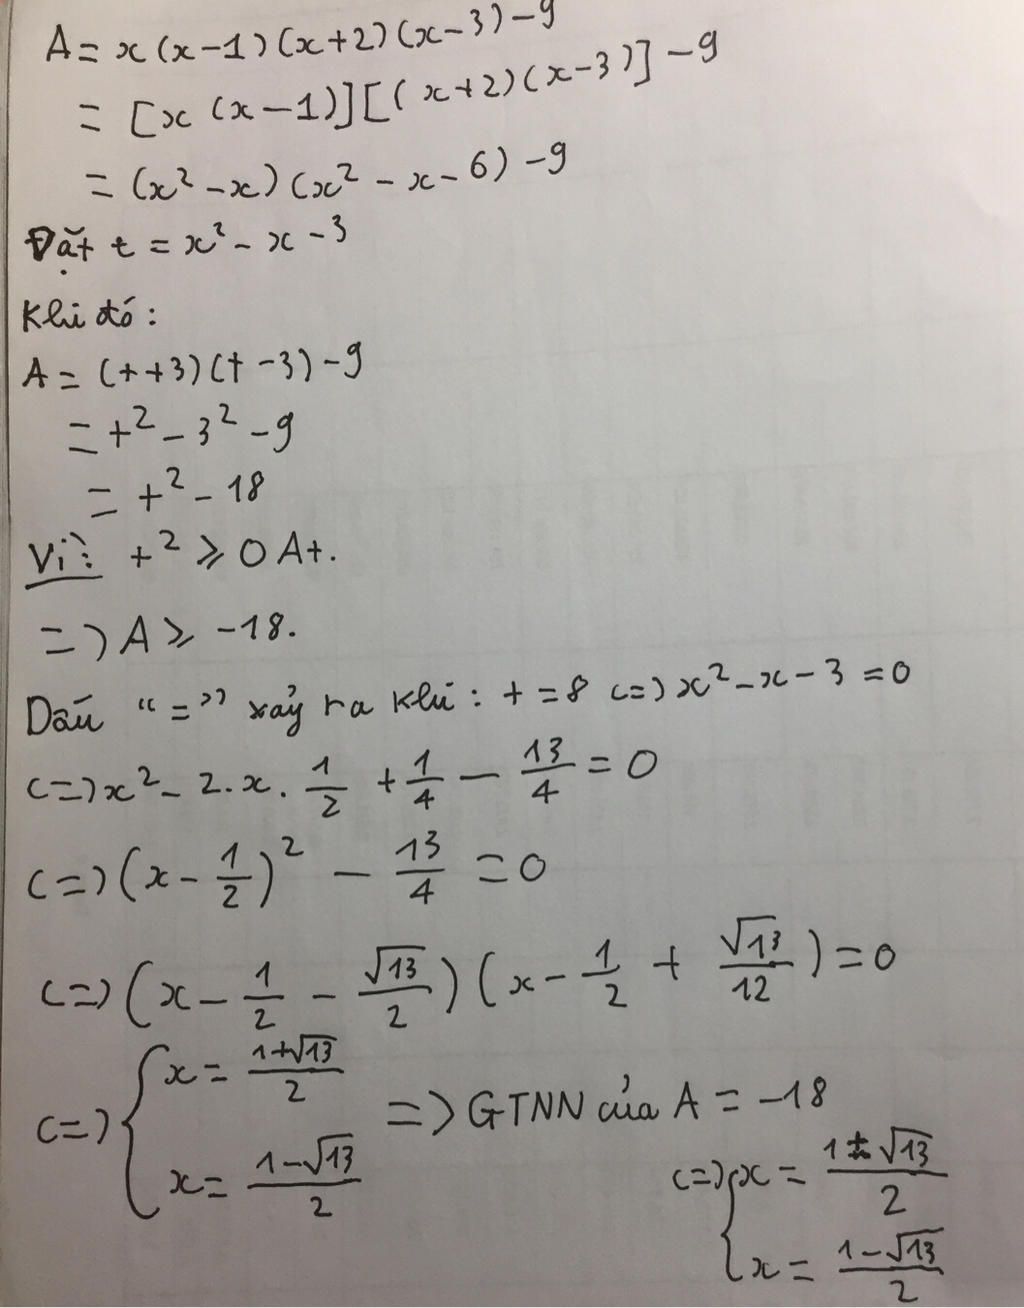 A = x(x-1)(x+2)(x-3)-9
= [x(x-1)][(x+2)(x-3)]-9
= (x² - x)(x² - x - 6) - 9
Đặt t = x² - x - 3
Khi đó:
A = (t+3)(t-3)-9
= t² - 3² - 9
= t² - 18
Vì: t² ⩾ 0 ∀t.
=> A ⩾ -18.
Dấu "=" xảy ra khi: t = 8 <=> x² - x - 3 = 0
<=> x² - 2.x.1/2 + 1/4 - 13/4 = 0
<=> (x - 1/2)² - 13/4 = 0
<=> (x - 1/2 - √13/2)(x - 1/2 + √13/12) = 0
<=> { x = (1+√13)/2
x = (1-√13)/2
=> GTNN của A = -18
<=> { x = (1±√13)/2
x = (1-√13)/2